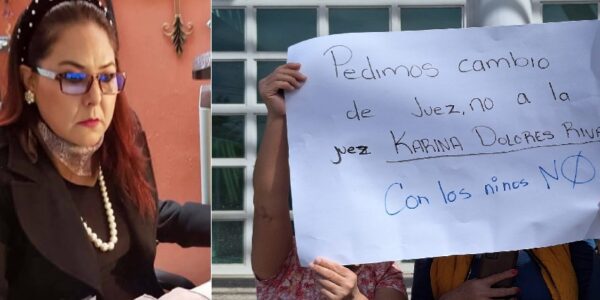 Pedimos cambio
de Juez, no a la
juez KARINA DOLORES
Con los niños NO